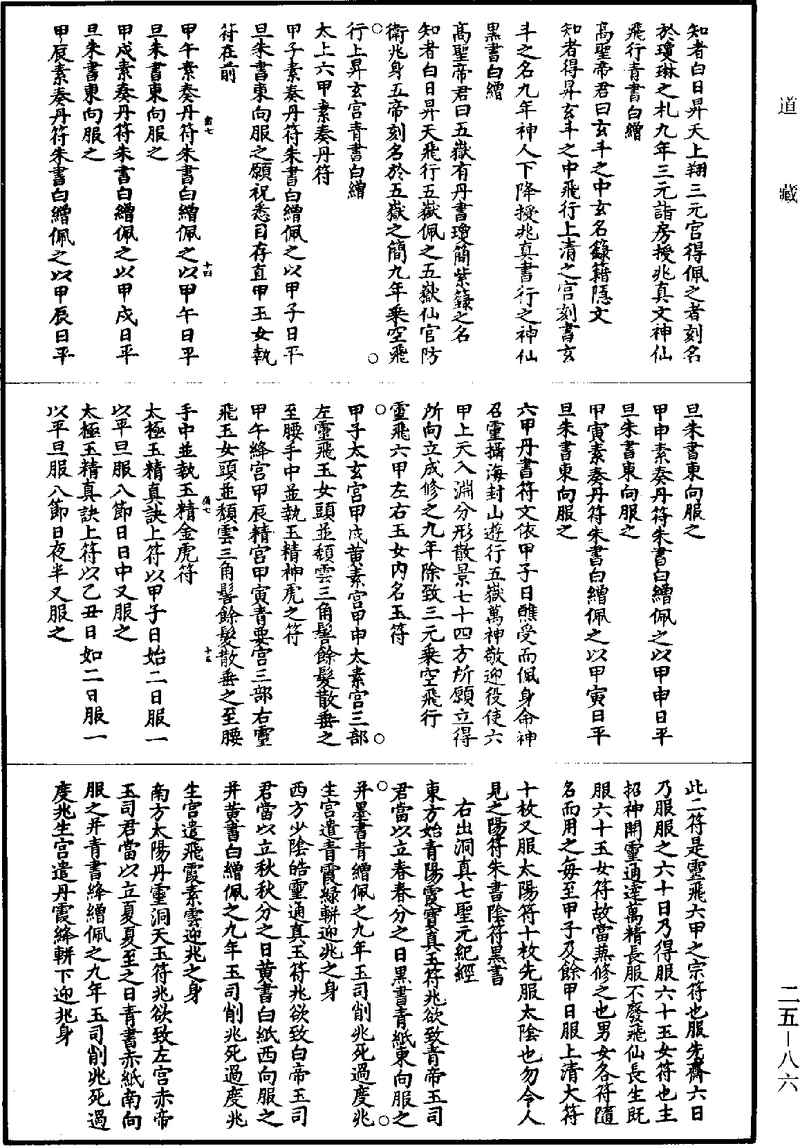 道藏
知者白日昇天上翔三元宫得佩之者刻名
於瓊琳之札九年三元詣房授兆真文神仙
飛行青書白繒
高聖帝君曰玄斗之中玄名籙籍隱文
知者得昇玄斗之中飛行上清之宫刻書玄
斗之名九年神人下降授兆真書行之神仙
黑書白繒
高聖帝君曰五嶽有丹書瓊簡紫籙之名
知者白日昇天飛行五嶽佩之五嶽仙官防
衛兆身五帝刻名於五嶽之簡九年乗空飛
行上昇玄宫青書白繒
太上六甲素奏丹符
甲子素奏丹符朱書白繒佩之以甲子日平
旦朱書東向服之願祝悉目存直甲玉女執
符在前
甲午素奏丹符朱書白繒佩之以甲午日平
旦朱書東向服之
甲戍素奏丹符朱書白繒佩之以甲戍日平
旦朱書東向服之
甲辰素奏丹符朱書白繒佩之以甲辰日平
旦朱書東向服之
甲申素奏丹符朱書白繒佩之以甲申日平
旦朱書東向服之
甲寅素奏丹符朱書白繒佩之以甲寅日平
旦朱書東向服之
六甲丹書符文依甲子日醮受而佩身命神
召靈攝海封山遊行五嶽萬神敬迎役使六
甲上天入淵分形散景七十四方所願立得
所向立成修之九年除致三元乗空飛行
靈飛六甲左右玉女内名玉符
甲子太玄宫甲戍黄素宫甲申太素宫三部
左靈飛玉女頭並頹雲三角髻餘髮散垂之
至腰手中並執玉精神虎之符
甲午絳宫甲辰精宫甲寅青要宫三部右靈
飛玉女頭並頹雲三角髻餘髮散垂之至腰
手中並執玉精金虎符
太極玉精真訣上符以甲子日始二日服一
以平旦服八節日日中又服之
太極玉精真訣上符以乙丑日如二日服一
以平旦服八節日夜半又服之
此二符是靈飛六甲之宗符也服先齋六日
乃服服之六十日乃得服六十五女符也主
招神開靈通達萬精長服不廢飛仙長生既
服六十五女符故當兼修之也男女各符隨
名而用之每至甲子及餘甲日服上清大符
十枚又服太陽符十枚先服太陰也勿令人
見之陽符朱書陰符黑書
右出洞真七聖元紀經
東方始青陽霞寶真玉符兆欲致青帝玉司
君當以立春春分之日黑書青紙東向服之
并墨書青繒佩之九年玉司削兆死過度兆
生宫遣青霞緑軿迎兆之身
西方少陰皓靈通真玉符兆欲致白帝玉司
君當以立秋秋分之日黄書白紙西向服之
并黄書白繒佩之九年玉司削兆死過度兆
生宫遣飛霞素雲迎兆之身
南方太陽丹靈洞天玉符兆欲致左宫赤帝
玉司君當以立夏夏至之日青書赤紙南向
服之并青書絳繒佩之九年玉司削兆死過
度兆生宫遣丹霞絳軿下迎兆身
二五－八六